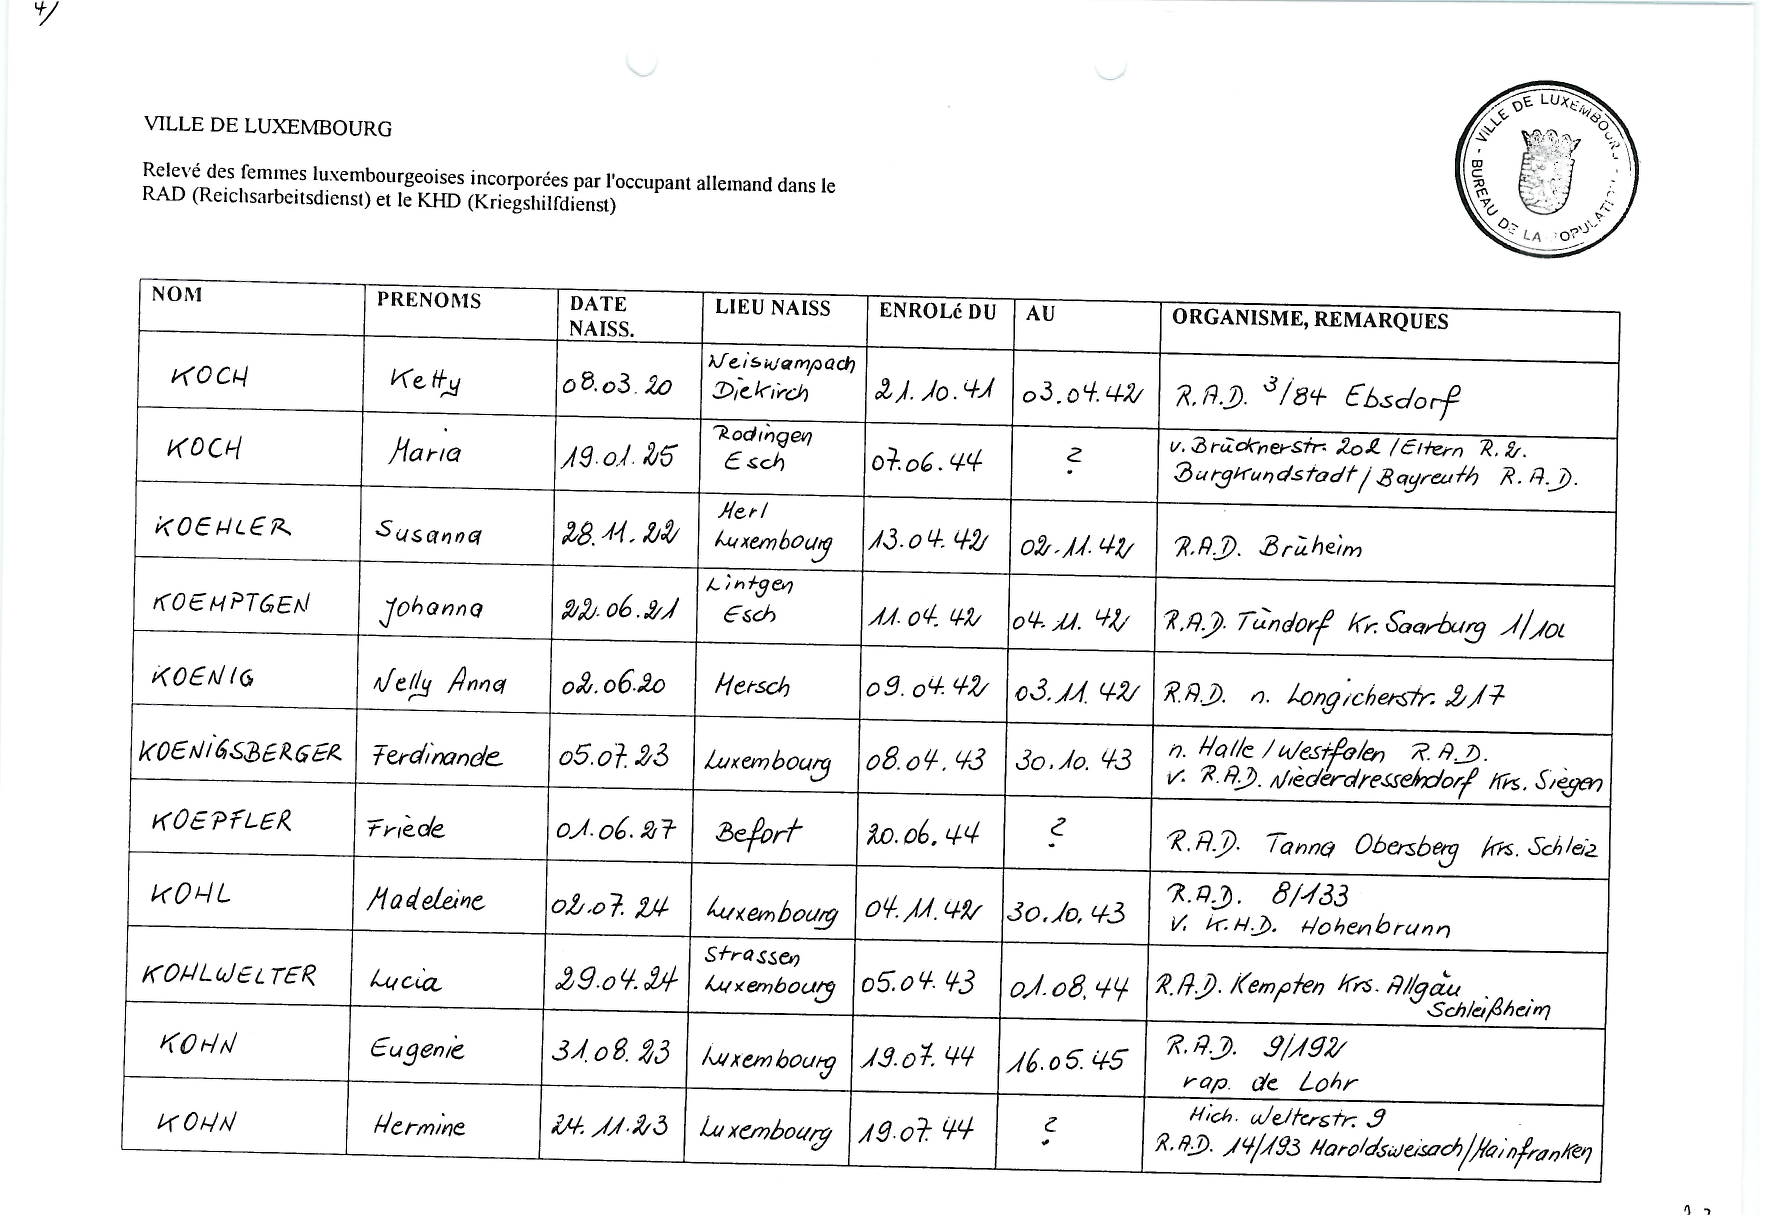 4/
VILLE DE LUXEMBOURG
Relevé des femmes luxembourgeoises incorporées par l'occupant allemand dans le
RAD (Reichsarbeitsdienst) et le KHD (Kriegshilfdienst)
- VILLE DE LUXEMBOURG -
BUREAU DE LA POPULATION
NOM PRENOMS DATE NAISS. LIEU NAISS ENROLé DU AU ORGANISME, REMARQUES
KOCH Ketty 08.03.20 Weiswampach Diekirch 21.10.41 03.04.42 R.A.D. 3/84 Ebsdorf
KOCH Maria 19.01.25 Rodingen Esch 07.06.44 ? v. Brücknerstr. 202 / Eltern R. 2.
Burgkundstadt / Bayreuth R.A.D.
KOEHLER Susanna 28.11.22 Merl Luxembourg 13.04.42 02.11.42 R.A.D. Brüheim
KOEMPTGEN Johanna 22.06.21 Lintgen Esch 11.04.42 04.11.42 R.A.D. Tündorf Kr. Saarburg 1/102
KOENIG Nelly Anna 02.06.20 Mersch 09.04.42 03.11.42 R.A.D. n. Longicherstr. 217
KOENIGSBERGER Ferdinande 05.07.23 Luxembourg 08.04.43 30.10.43 n. Halle / Westfalen R.A.D.
v. R.A.D. Niederdresselndorf Krs. Siegen
KOEPFLER Friede 01.06.27 Befort 20.06.44 ? R.A.D. Tanna Obersberg Krs. Schleiz
KOHL Madeleine 02.07.24 Luxembourg 04.11.42 30.10.43 R.A.D. 8/133
v. K.H.D. Hohenbrunn
KOHLWELTER Lucia 29.04.24 Strassen Luxembourg 05.04.43 01.08.44 R.A.D. Kempten Krs. Allgäu
Schleißheim
KOHN Eugenie 31.08.23 Luxembourg 19.07.44 16.05.45 R.A.D. 9/192
rap. de Lohr
KOHN Hermine 24.11.23 Luxembourg 19.07.44 ? Mich. Welterstr. 9
R.A.D. 14/193 Maroldsweisach/Mainfranken